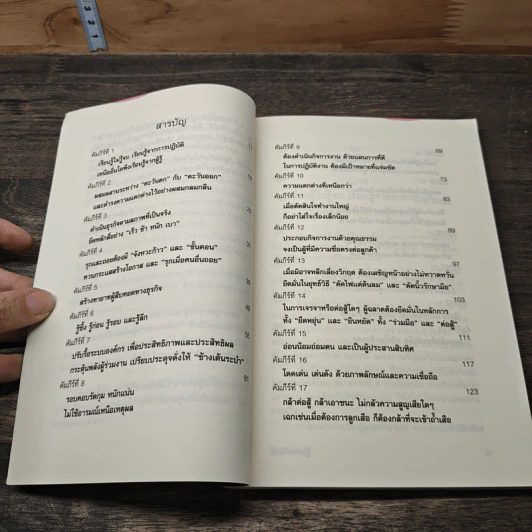 สารบัญ
คัมภีร์ที่ 1
เรียนรู้ไม่รู้จบ เรียนรู้จากการปฏิบัติ
เหนือสิ่งอื่นใดพึงเรียนรู้จากผู้รู้
คัมภีร์ที่ 2
ผสมผสานระหว่าง "ตะวันตก" กับ "ตะวันออก"
และดำรงความแตกต่างไว้อย่างผสมกลมกลืน
คัมภีร์ที่ 3
ดำเนินธุรกิจตามสภาพที่เป็นจริง
ยึดหลักสี่อย่าง "เร็ว ช้า หนัก เบา"
คัมภีร์ที่ 4
รุกและถอยต้องมี "จังหวะก้าว" และ "ขั้นตอน"
ทวนกระแสสร้างโอกาส และ "รุกเมื่อคนอื่นถอย"
คัมภีร์ที่ 5
สร้างทายาทผู้สืบทอดทางธุรกิจ
คัมภีร์ที่ 6
รู้ซึ้ง รู้ก่อน รู้รอบ และรู้ลึก
คัมภีร์ที่ 7
ปรับรื้อระบบองค์กร เพื่อประสิทธิภาพและประสิทธิผล
กระตุ้นพลังผู้ร่วมงาน เปรียบประดุจดั่งให้ "ช้างเต้นระบำ"
คัมภีร์ที่ 8 61
รอบคอบรัดกุม หนักแน่น
ไม่ใช้อารมณ์เหนือเหตุผล
คัมภีร์ที่ 9 69
ต้องดำเนินกิจการงาน ด้วยแผนการที่ดี
ในการปฏิบัติงาน ต้องมีเป้าหมายที่แจ่มชัด
คัมภีร์ที่ 10 73
ความแตกต่างที่เหนือกว่า
คัมภีร์ที่ 11 83
เมื่อตัดสินใจทำงานใหญ่
ก็อย่าใส่ใจเรื่องเล็กน้อย
คัมภีร์ที่ 12 87
ประกอบกิจการงานด้วยคุณธรรม
จงเป็นผู้ที่มีความซื่อตรงต่อลูกค้า
คัมภีร์ที่ 13 97
เมื่อมิอาจหลีกเลี่ยงวิกฤต ต้องเผชิญหน้าอย่างไม่หวาดหวั่น
ยึดมั่นในยุทธ์วิธี "ตัดไฟแต่ต้นลม" และ "ตัดนิ้วรักษามือ"
คัมภีร์ที่ 14 103
ในการเจรจาหรือต่อสู้ใดๆ ผู้ฉลาดต้องยึดมั่นในหลักการ
ทั้ง "ยืดหยุ่น" และ "ยืนหยัด" ทั้ง "ร่วมมือ" และ "ต่อสู้"
คัมภีร์ที่ 15 111
อ่อนน้อมถ่อมตน และเป็นผู้ประสานสิบทิศ
คัมภีร์ที่ 16 117
โดดเด่น เด่นดัง ด้วยภาพลักษณ์และความเชื่อถือ
คัมภีร์ที่ 17 123
กล้าต่อสู้ กล้าเอาชนะ ไม่กลัวความสูญเสียใดๆ
เฉกเช่นเมื่อต้องการลูกเสือ ก็ต้องกล้าที่จะเข้าถ้ำเสือ